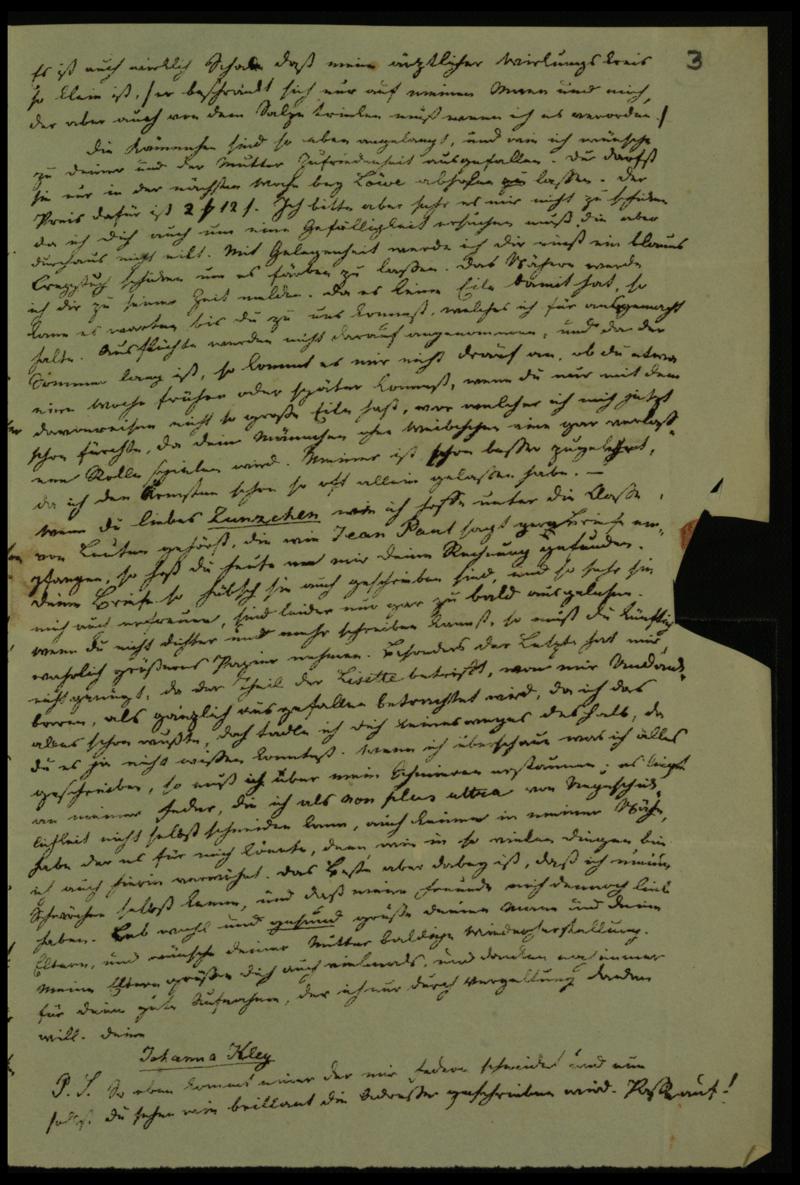 3
Es ist auch wirklich Schade daß mein ärztlicher Wirkungskreis
so klein ist, /er beschränkt sich nur auf meinen Mann und mich,
der aber auch von dem Salze trinken muß wenn ich es verordne./
Die Kämmchen sind so eben angelangt, und wie ich wünsche
zu deiner und der Mutter Zufriedenheit ausgefallen. Du darfst
sie nur in der nächsten Woche bey Löwe abholen zu lassen. Der
Preis dafür ist 2 12 f. Ich bitte aber sehr es mir nicht zu schicken
da ich dich auch um eine Gefälligkeit ersuchen muß, die aber
durchaus nicht eilt. Mit Gelegenheit werde ich dir ein blaues
Crepptuch schicken um es färben zu lassen. Das Nähere werde
ich dir zu seiner Zeit melden. Da es keine Eile damit hat, so
kann es warten bis du zu uns kommst, welches ich für ausgemacht
halte. Ausflüchte werden nicht darauf angenommen, und da der
Sommer lang ist, so kommt es mir nicht drauf an, ob du etwa
eine Woche früher oder später kommst, wenn du nur mit dem
davonreisen nicht so große Eile hast, vor welcher ich mich jetzt
schon fürchte, da dein Männchen ohne Weibchen eine gar verlass-
ene Rolle spielen wird. Meiner ist schon besser zugelehrt,
da ich den Ärmsten schon so oft allein gelassen habe. —
Wenn du liebes Zunzchen wie ich hoffe unter die Classe
von Leuten gehörst, die wie Jean Paul sagt gern Briefe em-
pfangen, so hast du heute mit mir deine Rechnung gefunden.
Deine Briefe so hübsch sie auch geschrieben sind, und so sehr sie
mich auch erfreuen, sind leider nur gar zu bald ausgelesen.
Wenn du nicht dichter und mehr schreiben kannst, so mußt du künftig
wahrlich größeres Papier nehmen. Besonders der Letzte hat mir
nicht genügt, da der Theil der Lisette betrifft, von mir Undank-
baren, als gänzlich ausgefallen betrachtet wird, da ich das
alles schon wußte, doch tadle ich dich keineswegs deshalb, da
du es ja nicht wissen konntest. Wenn ich überschaue was ich alles
geschrieben, so muß ich über mein Schmieren erstaunen; es liegt
an meiner Feder, die ich als non plus ultra von Ungeschick-
lichkeit nicht selbst schneiden kann, auch keinen in meiner Nähe
habe der es für mich könnte, denn wie in so vielen Dingen bin
ich auch hierin verwöhnt. Das Beste aber dabey ist, daß ich meine
Schwächen selbst kenne, und daß meine Freunde mich dennoch lieb
haben. Leb wohl und gesund grüße deinen Mann und deine
Eltern, und wünsche deiner Mutter baldige Wiederherstellung.
Meine Eltern grüßen dich auch vielmals, und danken noch immer
für deine gute Aufnahme, der ich nur durch Vergeltung danken
will. Deine
Johanna Kley
P. S. So eben kommt einer der mir Federn schneidet und nun
sollst du sehen wie brillant die Adresse geschrieben wird. Paß auf!